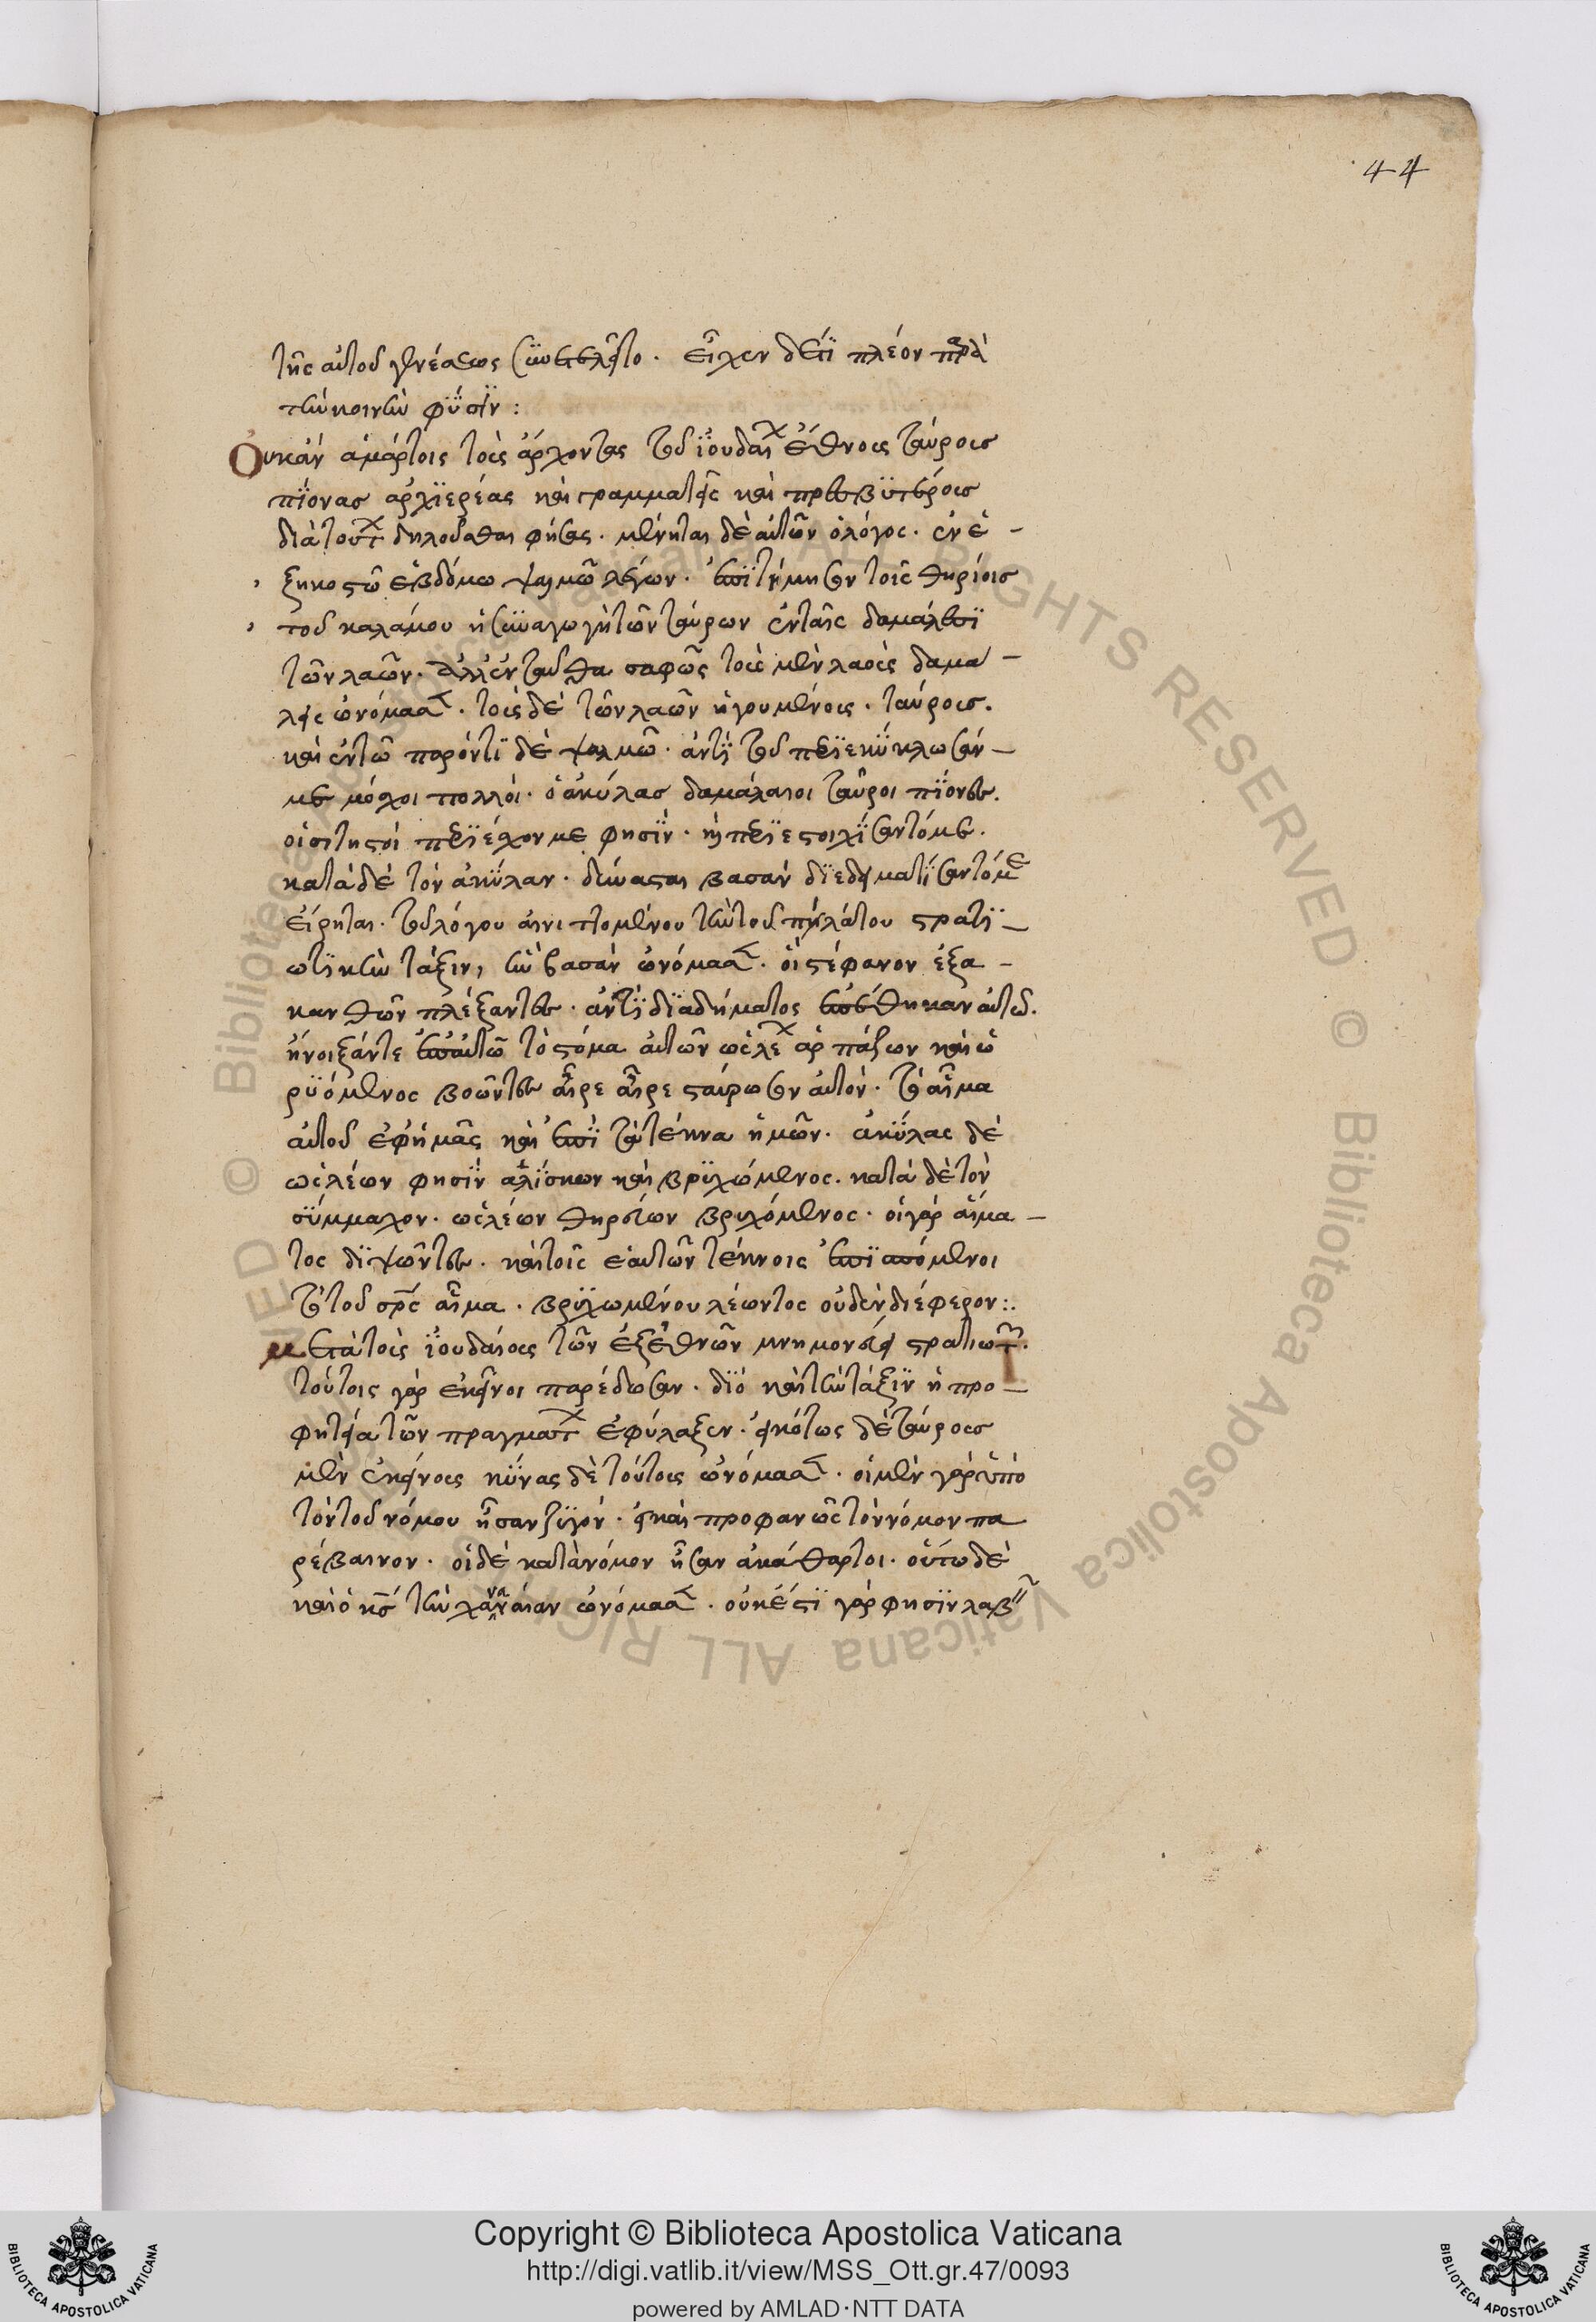 44
τῆς αὐτοῦ γενέσεως συνετελεῖτο. εἶχεν δέ τι πλέον παρὰ
τὴν κοινὴν φύσιν:
Οὐκ ἂν ἁμάρτοις τοὺς ἄρχοντας τοῦ ἰουδαι ἔθνους ταύρους
πίονας ἀρχιερέας καὶ γραμματεῖς καὶ πρεσβυτέρους
διὰ τουτ δηλοῦσθαι φήσας. μέμνηται δὲ αὐτῶν ὁ λόγος. ἐν ἑ–
ξηκοστῶ ἑβδόμω ψαλμῶ λέγων. ἐπιτίμησον τοῖς θηρίοις
τοῦ καλάμου ἡ συναγωγὴ τῶν ταύρων ἐν ταῖς δαμάλεσι
τῶν λαῶν. ἀλλ' ἐνταῦθα σαφῶς τοὺς μὲν λαοὺς δαμά–
λεις ὠνόμασ. τοὺς δὲ τῶν λαῶν ἡγουμένους. ταύρους.
καὶ ἐν τῶ παρόντι δὲ ψαλμῶ. ἀντὶ τοῦ περιεκύκλωσάν–
με μόσχοι πολλοί. ὁ ἀκύλας δαμάλαιοι ταῦροι πίονες.
οἱ σιτιστοὶ περιέσχον με φησίν. ἢ περιεστοιχίσαντό με.
κατὰ δὲ τὸν ἀκύλαν. δυνάσται βασὰν διεδηματίσαντό με
εἴρηται. τοῦ λόγου αἰνιττομένου τὴν τοῦ πιλάτου στρατι–
ωτικὴν τάξιν, ἣν βασὰν ὠνόμασ. οἳ στέφανον ἐξ ἀ–
κανθῶν πλέξαντες. ἀντὶ διαδήματος ἐπέθηκαν αὐτῶ.
ἤνοιξάν τε ἐπ' αὐτῶ τὸ στόμα αὐτῶν ὡς λε ἁρπάζων καὶ ὠ
ρυόμενος βοῶντες αἶρε αἶρε σταύρωσον αὐτόν. τὸ αἷμα
αὐτοῦ ἐφ' ἡμᾶς καὶ ἐπὶ τὰ τέκνα ἡμῶν. ἀκύλας δὲ
ὡς λέων φησὶν ἁλίσκων καὶ βρυχώμενος. κατὰ δὲ τὸν
σύμμαχον. ὡς λέων θηρῶν βρυχόμενος. οἱ γὰρ αἵμα–
τος διψῶντες. καὶ τοῖς ἑαυτῶν τέκνοις ἐπισπόμενοι
τὸ τοῦ σρς αἷμα. βρυχωμένου λέωντος οὐδὲν διέφερον:.
μετὰ τοὺς ἰουδαίους τῶν ἐξ ἐθνῶν μνημονεύει στρατιωτ.
τούτοις γὰρ ἐκεῖνοι παρέδωσαν. διὸ καὶ τὴν τάξιν ἡ προ–
φητεία τῶν πραγματ ἐφύλαξεν. εἰκότως δὲ ταύρους
μὲν ἐκείνους κύνας δὲ τούτους ὠνόμασ. οἱ μὲν γὰρ ὑπὸ
τὸν τοῦ νόμου ἦσαν ζυγόν. εἰ καὶ προφανῶς τὸν νόμον πα
ρέβαινον. οἱ δὲ κατὰ νόμον ἦσαν ἀκάθαρτοι. οὕτω δὲ
καὶ ὁ κς τὴν χαναναίαν ὠνόμασ. οὐκ ἔστι γὰρ φησὶν λαβ
Copyright © Biblioteca Apostolica Vaticana
http://digi.vatlib.it/view/MSS_Ott.gr.47/0093
powered by AMLAD·NTT DATA
BIBLIOTECA APOSTOLICA VATICANA
BIBLIOTECA APOSTOLICA VATICANA